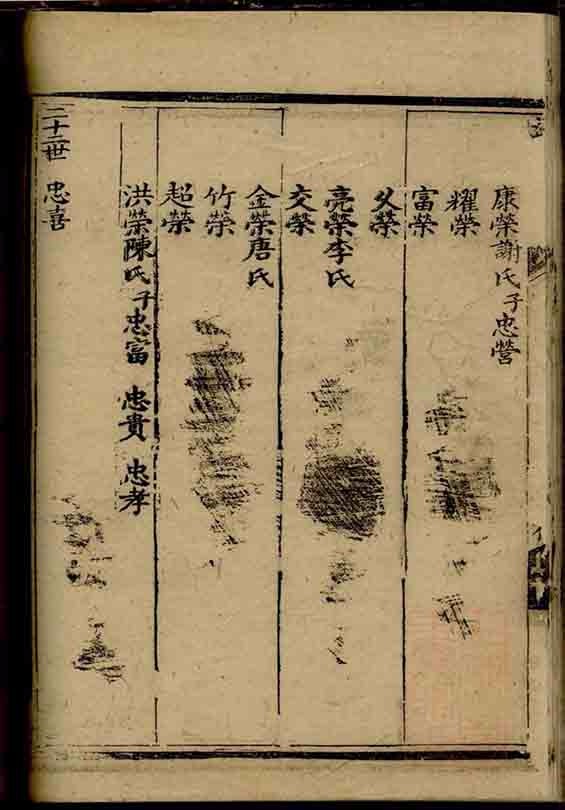 康榮謝氏子忠營
耀榮
富榮
父榮
亮榮李氏
交榮
金榮唐氏
竹榮
超榮
洪榮陳氏子忠富 忠貴 忠孝
二十二世 忠喜